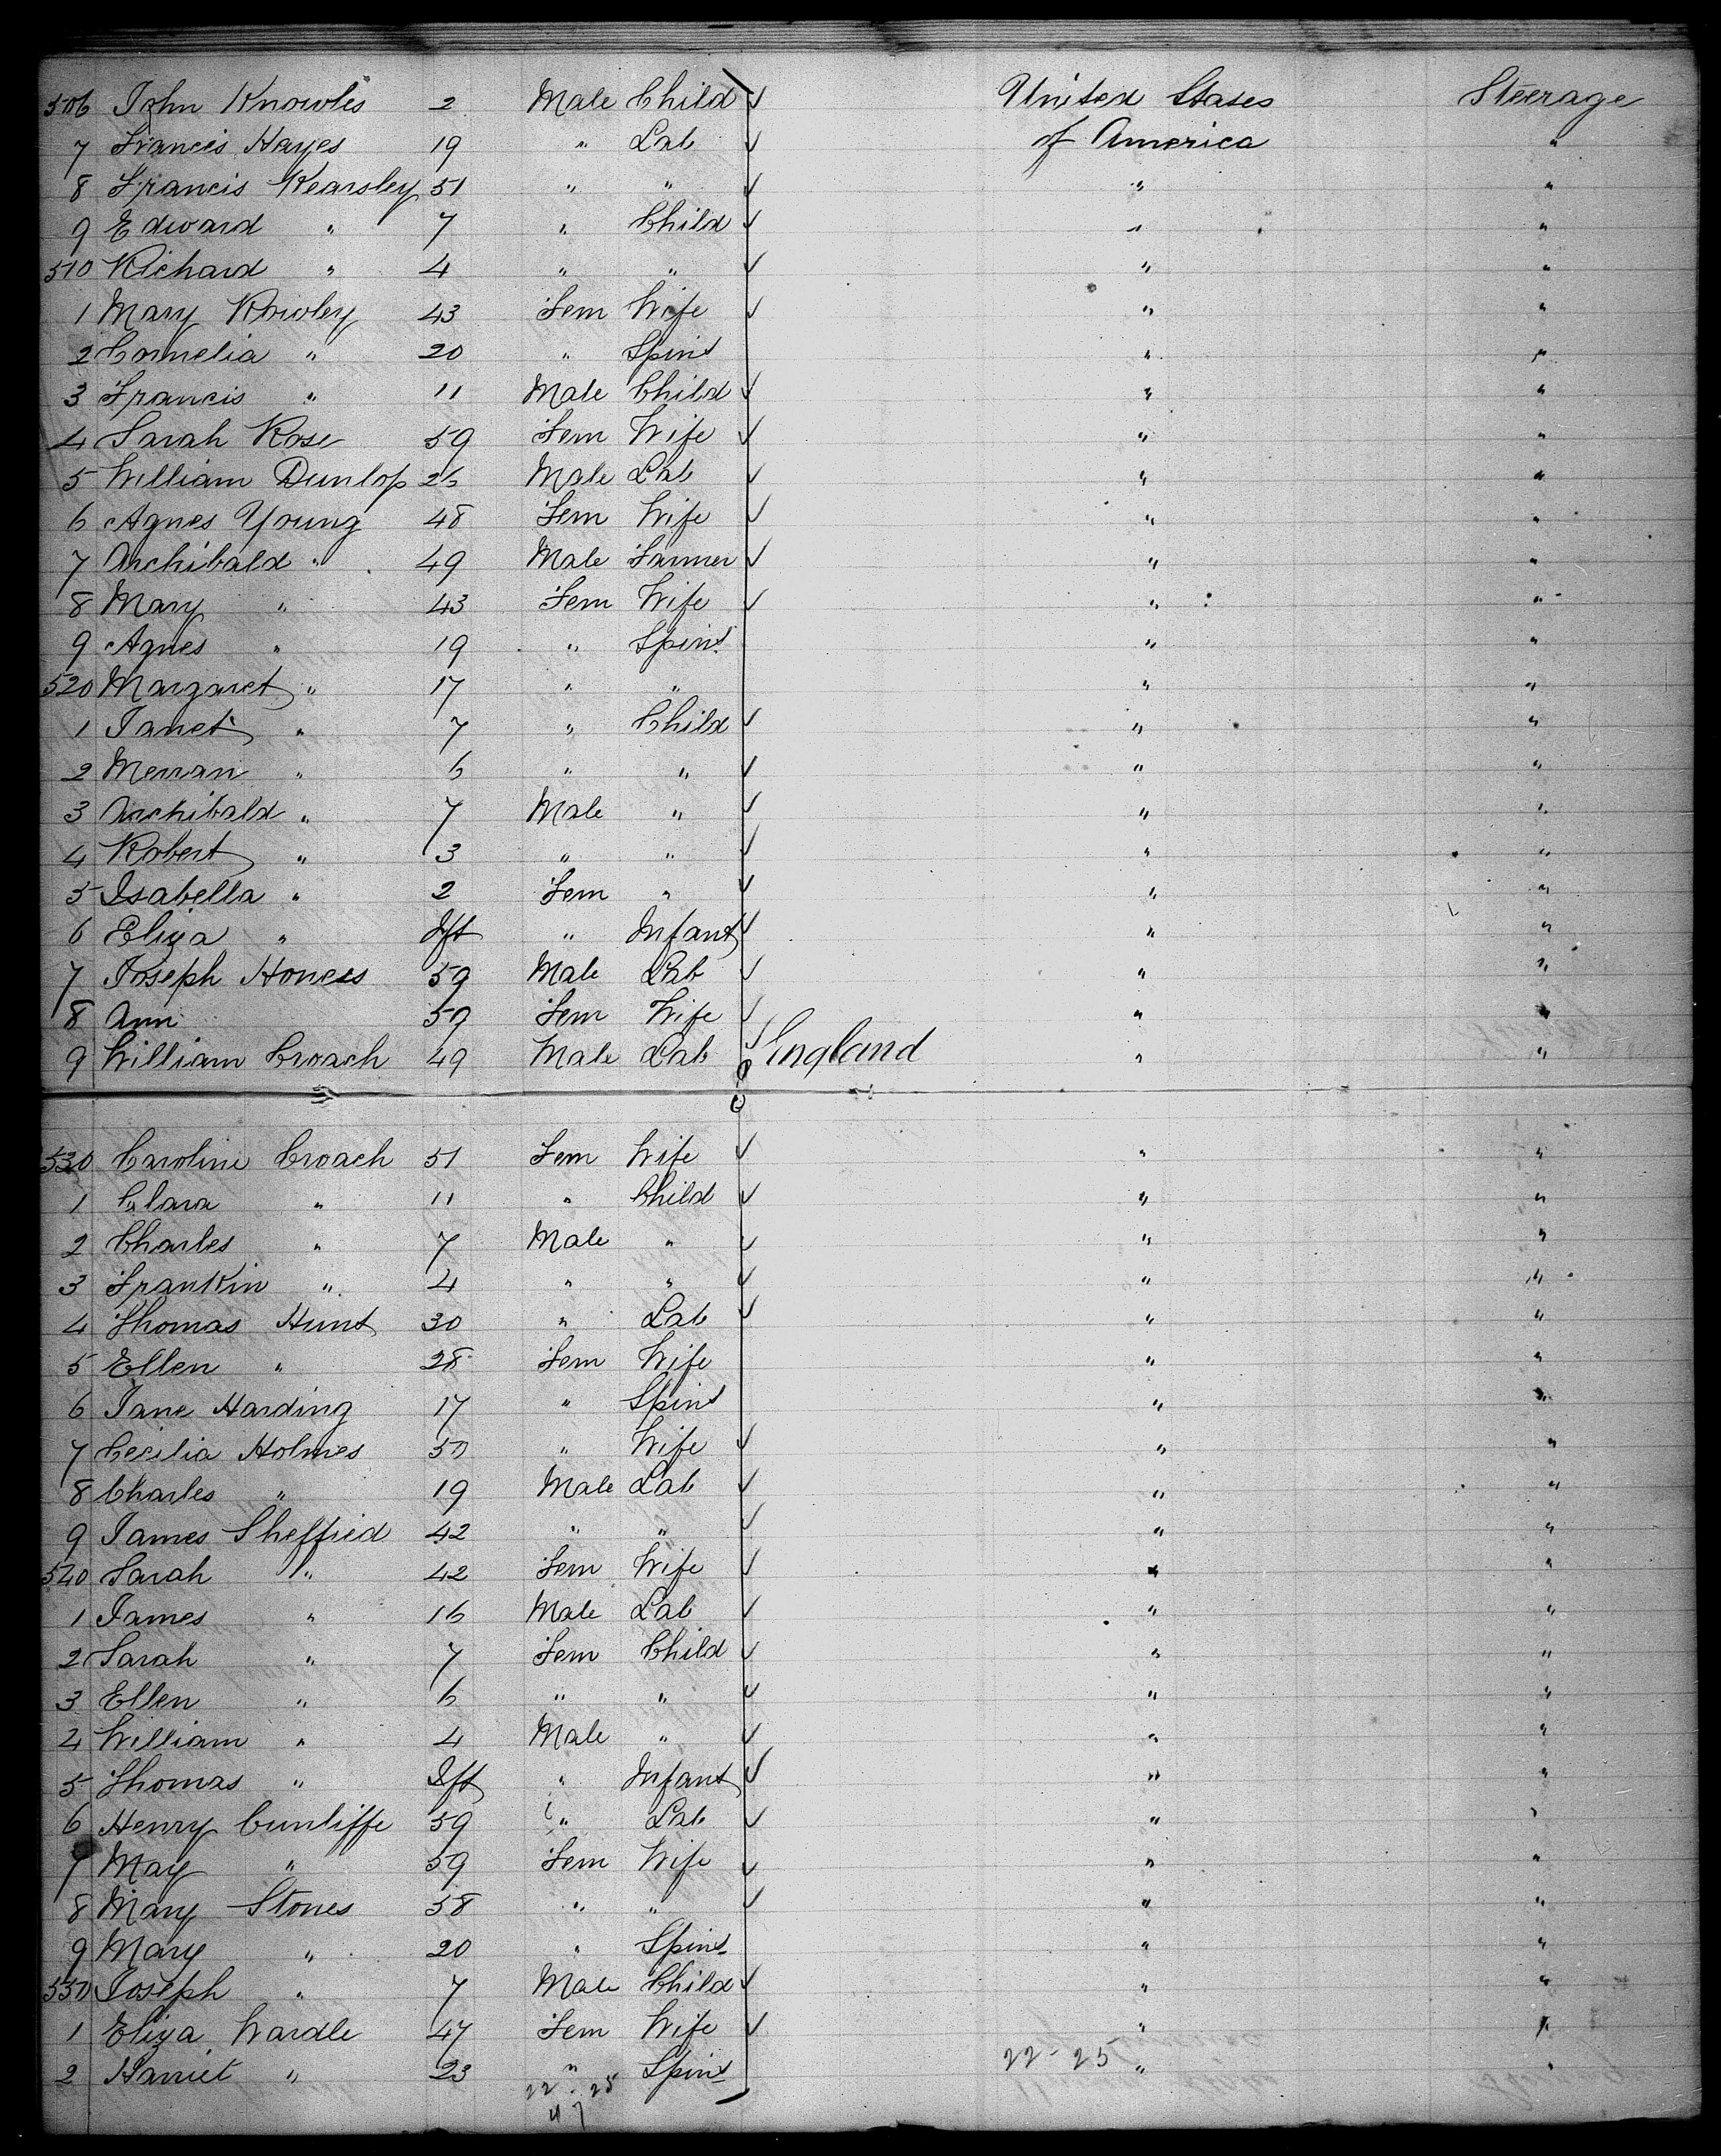 506 John Knowles 2 Male Child United States Steerage
7 Francis Hayes 19 " Lab of America "
8 Francis Kearsley 51 " " " "
9 Edward " 7 " Child " "
510 Richard " 4 " " " "
1 Mary Rowley 43 Fem Wife " "
2 Cornelia " 20 " Spins " "
3 Francis " 11 Male Child " "
4 Sarah Rose 59 Fem Wife " "
5 William Dunlop 26 Male Lab " "
6 Agnes Young 48 Fem Wife " "
7 Archibald " 49 Male Farmer " "
8 Mary " 43 Fem Wife " "
9 Agnes " 19 " Spins " "
520 Margaret " 17 " " " "
1 Janet " 7 " Child " "
2 Merran " 6 " " " "
3 Archibald " 7 Male " " "
4 Robert " 3 " " " "
5 Isabella " 2 Fem " " "
6 Eliza " Ift " Infant " "
7 Joseph Honess 59 Male Lab " "
8 Ann 59 Fem Wife " "
9 William Croach 49 Male Lab England " "
530 Caroline Croach 51 Fem Wife " "
1 Clara " 11 " Child " "
2 Charles " 7 Male " " "
3 Frankin " 4 " " " "
4 Thomas Hunt 30 " Lab " "
5 Ellen " 28 Fem Wife " "
6 Jane Harding 17 " Spins " "
7 Cecilia Holmes 50 " Wife " "
8 Charles " 19 Male Lab " "
9 James Sheffied 42 " " " "
540 Sarah " 42 Fem Wife " "
1 James " 16 Male Lab " "
2 Sarah " 7 Fem Child " "
3 Ellen " 6 " " " "
4 William " 4 Male " " "
5 Thomas " Ift " Infant " "
6 Henry Cunliffe 59 " Lab " "
7 May " 59 Fem Wife " "
8 Mary Stones 58 " " " "
9 Mary " 20 " Spins " "
550 Joseph " 7 Male Child " "
1 Eliza Wardle 47 Fem Wife " "
2 Harriet " 23 " Spins 22-25 " "
22.25
47